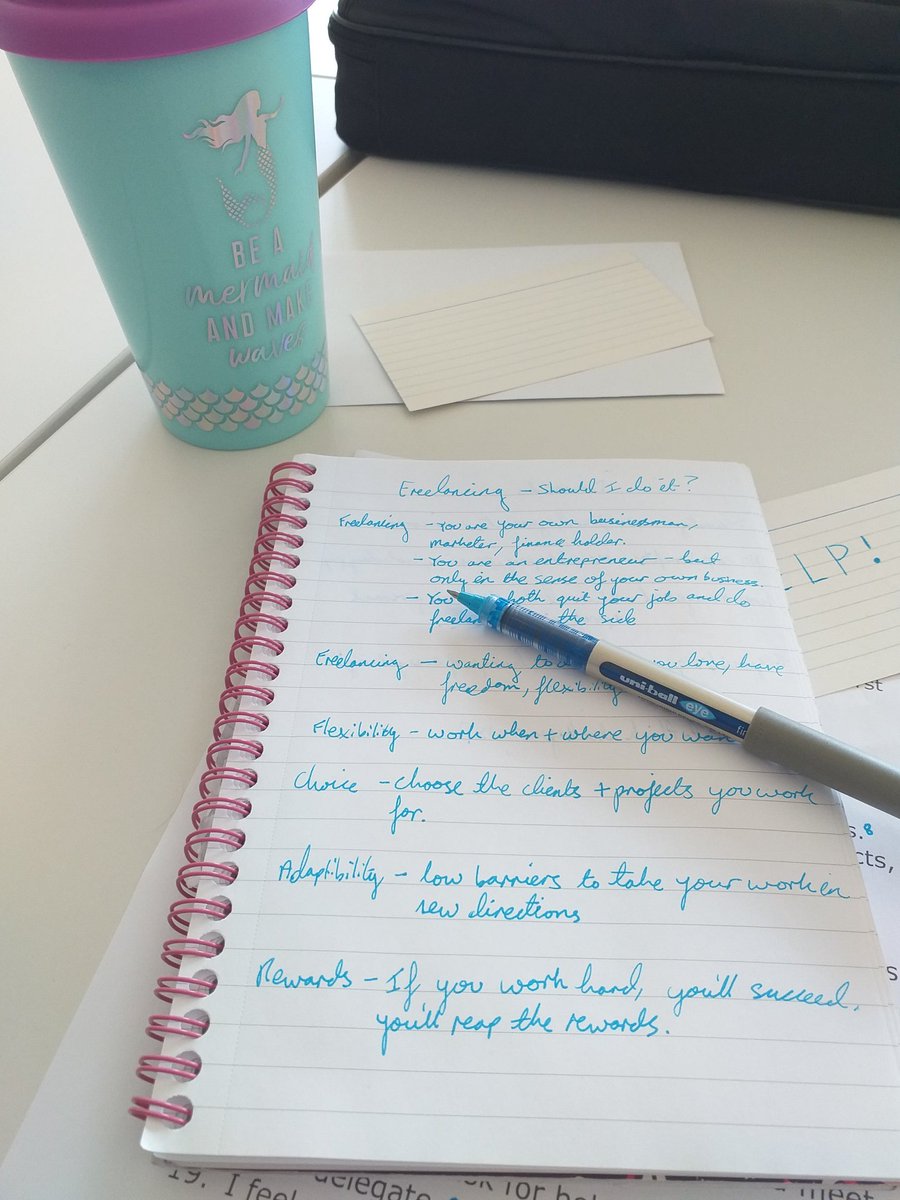 BE A
mermaid
AND MAKE
waves
Freelancing - Should I do it?
Freelancing - You are your own businessman,
marketer, finance holder.
- You are an entrepreneur - but
only in the sense of your own business.
- You both quit your job and do
freelan the side
Freelancing - wanting to you love, have
freedom, flexibility
Flexibility - work when + where you wan
Choice - choose the clients + projects you work
for.
Adaptibility - low barriers to take your work in
new directions
Rewards - If you work hard, you'll succeed,
you'll reap the rewards.
uni-ball eye
fin
LP!
st
s.8
cts,
s
19. I feel
delegate
sk for
meet